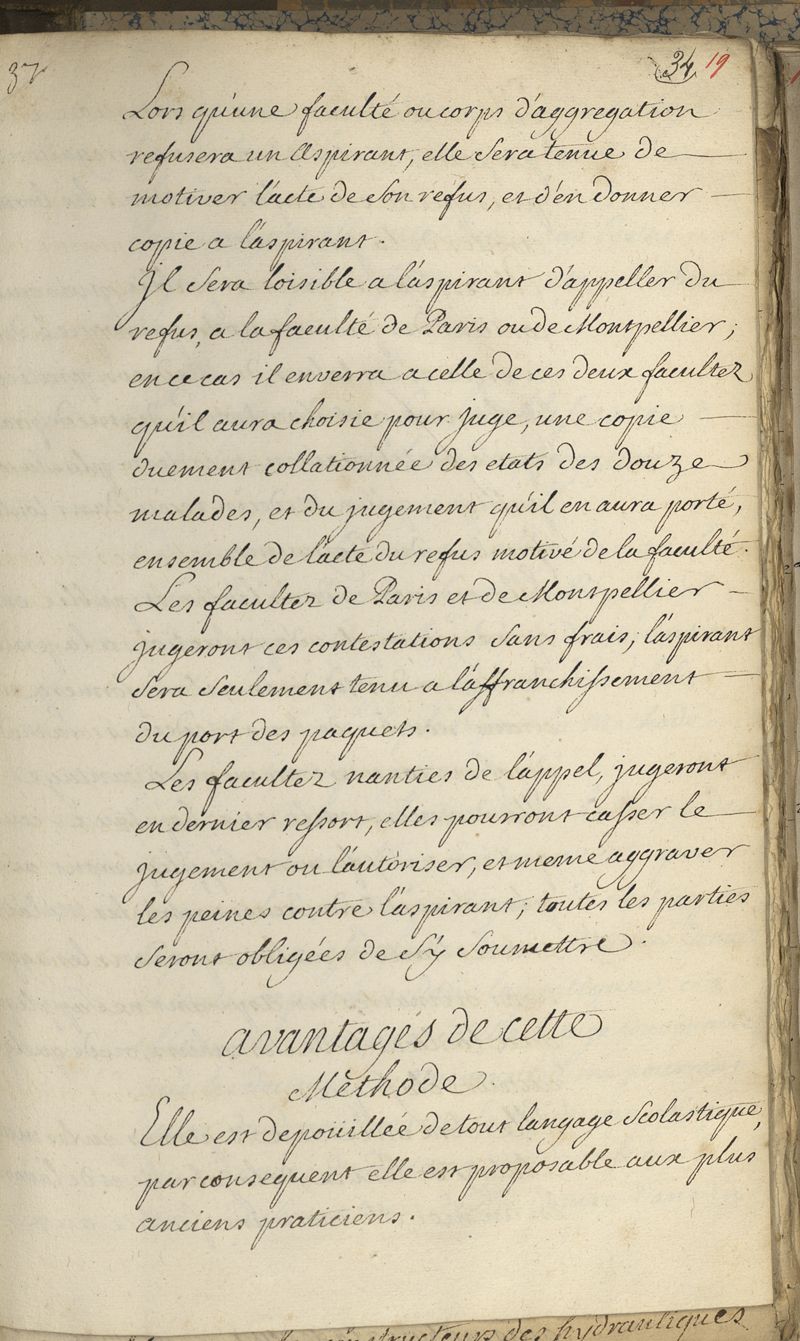 37
34 19
Lors qu'une faculté ou corps d'aggregation
refusera un aspirant, elle sera tenue de
motiver l'acte de son refus, et d'en donner
copie a l'aspirant.
Il sera loisible a l'aspirant d'appeller du
refus, a la faculté de Paris ou de Montpellier;
en ce cas il enverra a celle de ces deux facultez
qu'il aura choisie pour juge, une copie
duement collationnée des etats des douze
malades, et du jugement qu'il en aura porté,
ensemble de l'acte du refus motivé de la faculté.
Les facultez de Paris et de Montpellier
jugeront ces contestations sans frais; l'aspirant
sera seulement tenu a l'affranchissement
du port des paquets.
Les facultez nanties de l'appel, jugeront
en dernier ressort, elles pourront casser le
jugement ou l'autoriser, et meme aggraver
les peines contre l'aspirant; toutes les parties
seront obligées de s'y soumettre.
avantages de cette
Methode.
Elle est depouillée de tout langage scolastique,
par consequent elle est proposable aux plus
anciens praticiens.
des hydrauliques